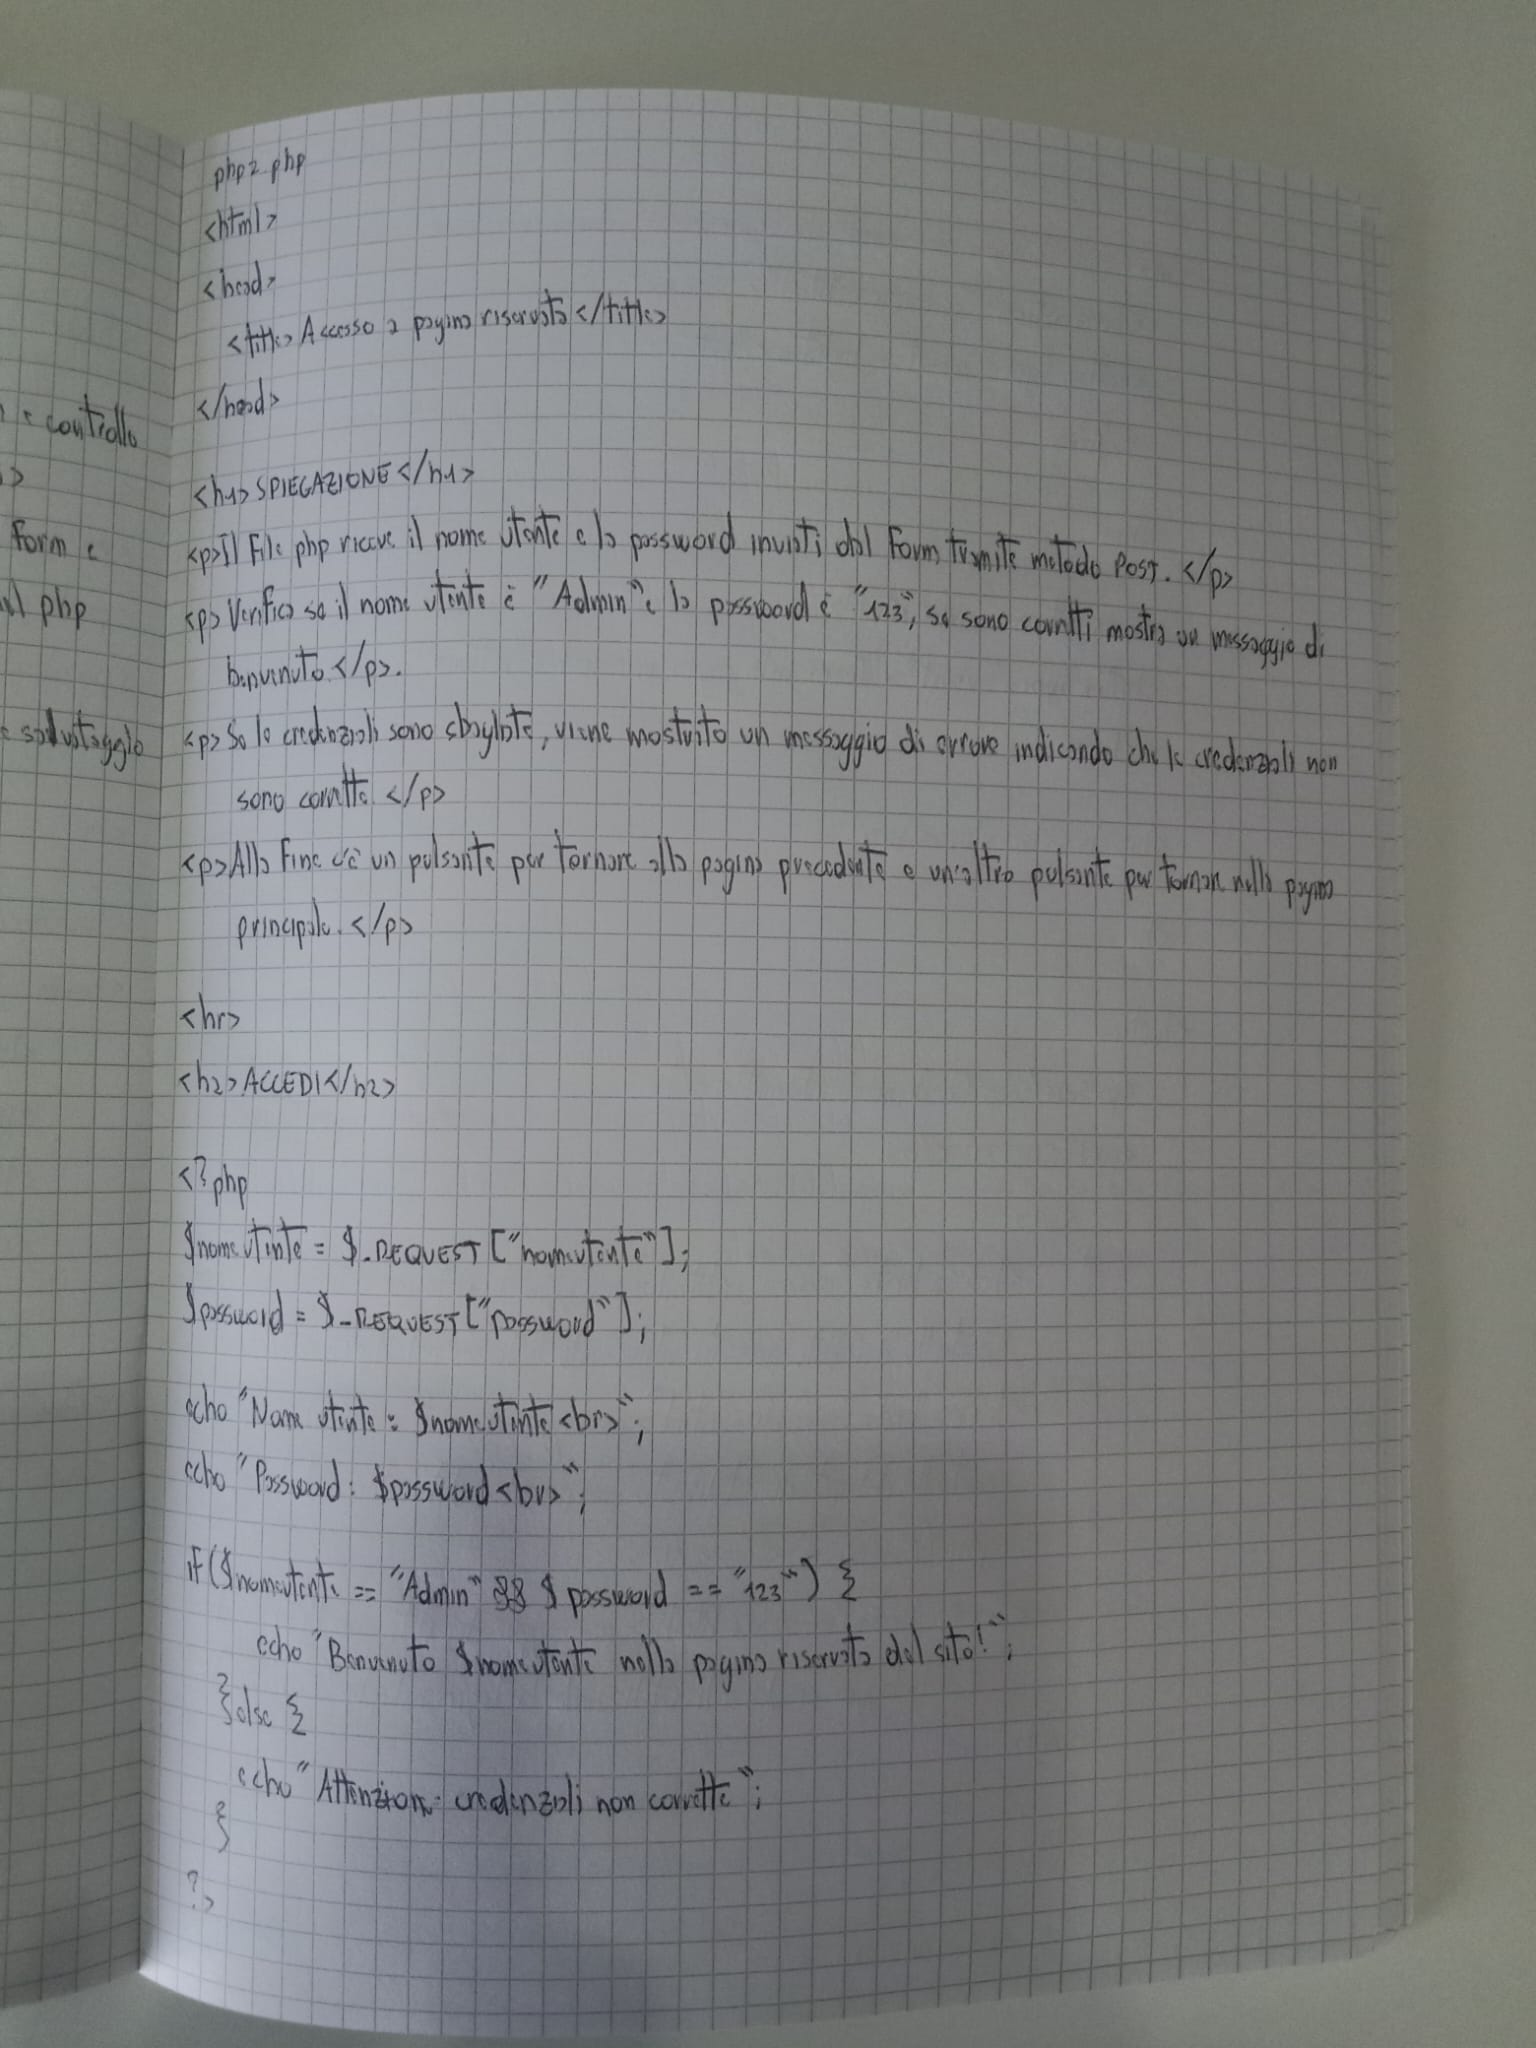 e controllo
form e
php
e salvataggio
php2.php
<html>
<head>
<title>Accesso a pagina riservata</title>
</head>
<h1>SPIEGAZIONE</h1>
<p>Il File php riceve il nome utente e la password inviati dal Form tramite metodo Post.</p>
<p>Verifica se il nome utente è "Admin" e la password è "123", se sono corretti mostra un messaggio di
benvenuto.</p>.
<p>Se le credenziali sono sbagliate, viene mostrato un messaggio di errore indicando che le credenziali non
sono corrette.</p>
<p>Alla Fine c'è un pulsante per tornare alla pagina precedente e un'altro pulsante per tornare nella pagina
principale.</p>
<hr>
<h2>ACCEDI</h2>
<?php
$nomeutente = $_REQUEST["nomeutente"];
$password = $_REQUEST["password"];
echo "Nome utente: $nomeutente<br>";
echo "Password: $password<br>";
if($nomeutente == "Admin" && $password == "123") {
echo "Benvenuto $nomeutente nella pagina riservata del sito!";
}else {
echo "Attenzione: credenziali non corrette";
}
?>